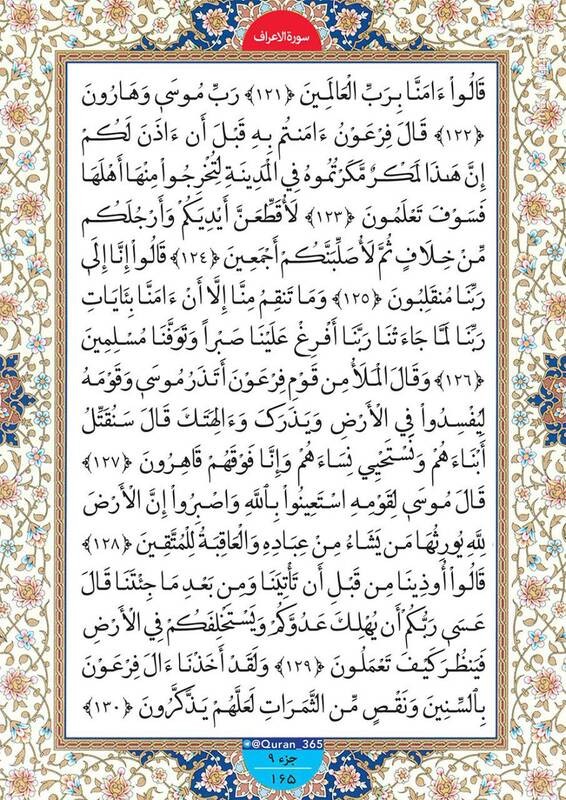 سورة الاعراف
قَالُواْ ءَامَنَّا بِرَبِّ الْعَالَمِينَ ﴿١٢١﴾ رَبِّ مُوسَىٰ وَهَارُونَ
﴿١٢٢﴾ قَالَ فِرْعَوْنُ ءَامَنتُم بِهِ قَبْلَ أَن ءَاذَنَ لَكُم
إِنَّ هَـٰذَا لَمَكْرٌ مَّكَرْتُمُوهُ فِي الْمَدِينَةِ لِتُخْرِجُواْ مِنْهَا أَهْلَهَا
فَسَوْفَ تَعْلَمُونَ ﴿١٢٣﴾ لَأُقَطِّعَنَّ أَيْدِيَكُمْ وَأَرْجُلَكُم
مِّنْ خِلَافٍ ثُمَّ لَأُصَلِّبَنَّكُمْ أَجْمَعِينَ ﴿١٢٤﴾ قَالُواْ إِنَّا إِلَىٰ
رَبِّنَا مُنقَلِبُونَ ﴿١٢٥﴾ وَمَا تَنقِمُ مِنَّا إِلَّا أَنْ ءَامَنَّا بِئَايَاتِ
رَبِّنَا لَمَّا جَاءَتْنَا رَبَّنَا أَفْرِغْ عَلَيْنَا صَبْراً وَتَوَفَّنَا مُسْلِمِينَ
﴿١٢٦﴾ وَقَالَ الْمَلَأُ مِن قَوْمِ فِرْعَوْنَ أَتَذَرُ مُوسَىٰ وَقَوْمَهُ
لِيُفْسِدُواْ فِي الْأَرْضِ وَيَذَرَكَ وَءَالِهَتَكَ قَالَ سَنُقَتِّلُ
أَبْنَاءَهُمْ وَنَسْتَحْيِي نِسَاءَهُمْ وَإِنَّا فَوْقَهُمْ قَاهِرُونَ ﴿١٢٧﴾
قَالَ مُوسَىٰ لِقَوْمِهِ اسْتَعِينُواْ بِاللَّهِ وَاصْبِرُواْ إِنَّ الْأَرْضَ
لِلَّهِ يُورِثُهَا مَن يَشَاءُ مِنْ عِبَادِهِ وَالْعَاقِبَةُ لِلْمُتَّقِينَ ﴿١٢٨﴾
قَالُواْ أُوذِينَا مِن قَبْلِ أَن تَأْتِيَنَا وَمِن بَعْدِ مَا جِئْتَنَا قَالَ
عَسَىٰ رَبُّكُمْ أَن يُهْلِكَ عَدُوَّكُمْ وَيَسْتَخْلِفَكُمْ فِي الْأَرْضِ
فَيَنظُرَ كَيْفَ تَعْمَلُونَ ﴿١٢٩﴾ وَلَقَدْ أَخَذْنَا ءَالَ فِرْعَوْنَ
بِالسِّنِينَ وَنَقْصٍ مِّنَ الثَّمَرَاتِ لَعَلَّهُمْ يَذَّكَّرُونَ ﴿١٣٠﴾
@Quran_365
جزء ٩
١٦٥